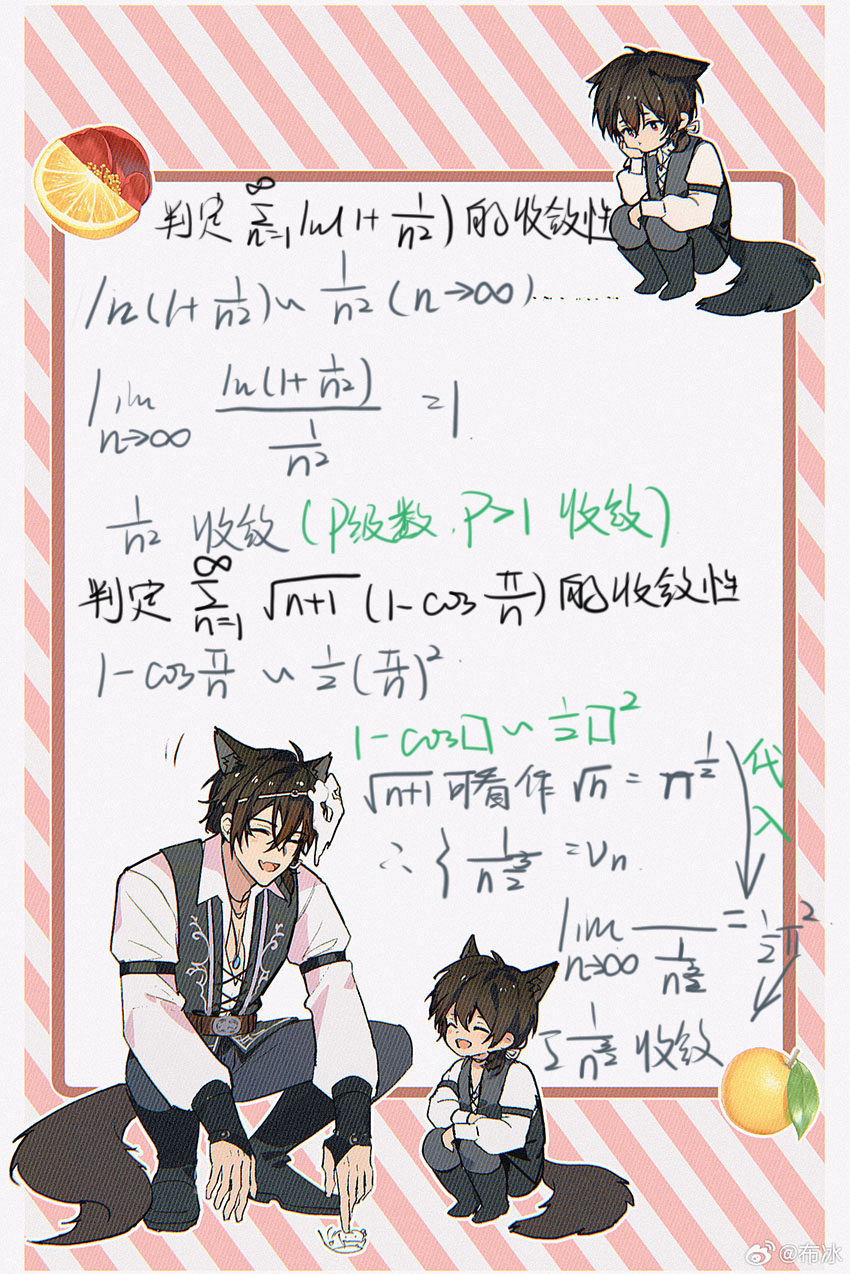 判定 ∞ Σ n=1 ln(1+ 1/n²)的收敛性
ln(1+ 1/n²)~ 1/n² (n→∞)......
lim n→∞ ln(1+ 1/n²) / 1/n² =1
1/n² 收敛(P级数,P>1 收敛)
判定 ∞ Σ n=1 √n+1 (1-cos π/n)的收敛性
1-cos π/n ~ 1/2 (π/n)²
1-cos□~ 1/2 □²
√n+1 可看作 √n = n^1/2
代入
∴ { 1/n^3/2 =Vn
lim n→∞ — / 1/n^3/2 = 1/2 π²
Σ 1/n^3/2 收敛
@布冰